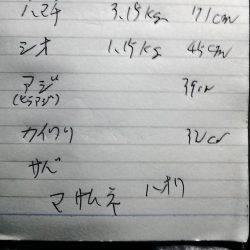 ハマチ 3.15kg 71cm
シオ 1.15kg 45cm
アジ 39cm
(ヒラアジ)
カイワリ 32cm
サバ
マサムネ ハオリ